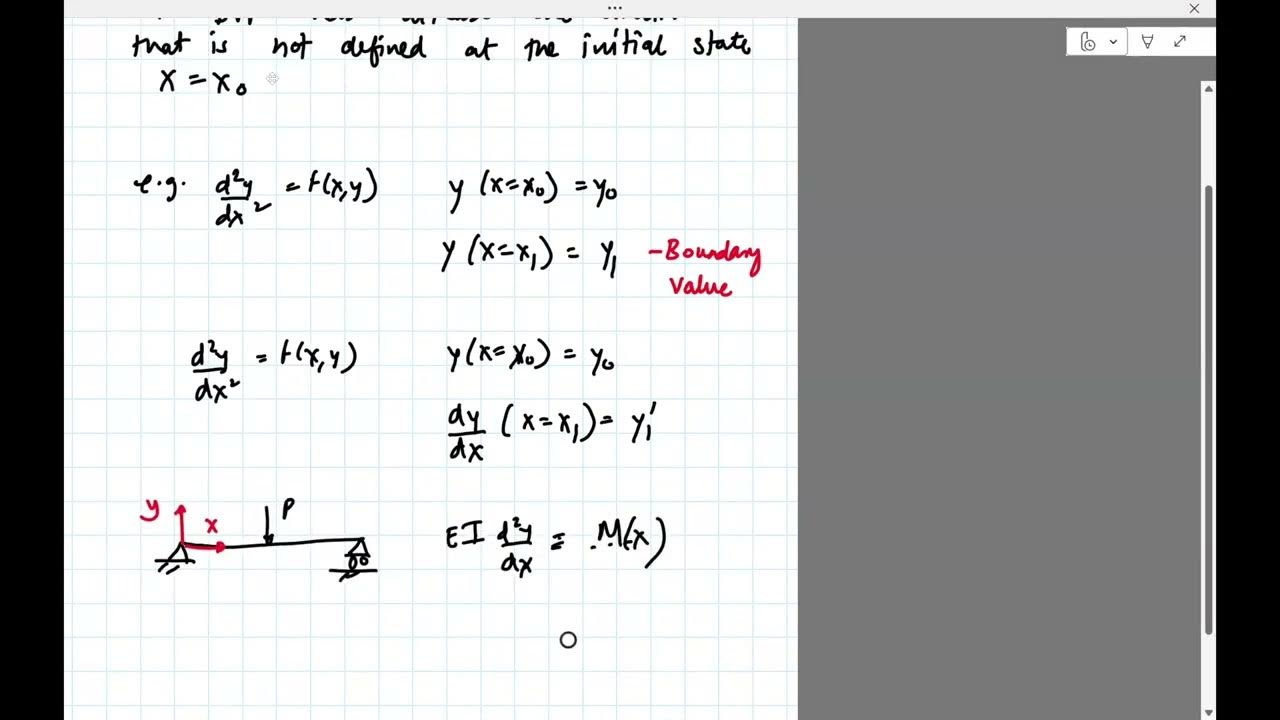 that is not defined at the initial state
x = x₀
e.g. d²y/dx² = f(x,y) y (x=x₀) = y₀
y (x=x₁) = y₁ - Boundary
Value
d²y/dx² = f(x,y) y(x=x₀) = y₀
dy/dx (x=x₁) = y₁'
y
x
P
EI d²y/dx = M(x)